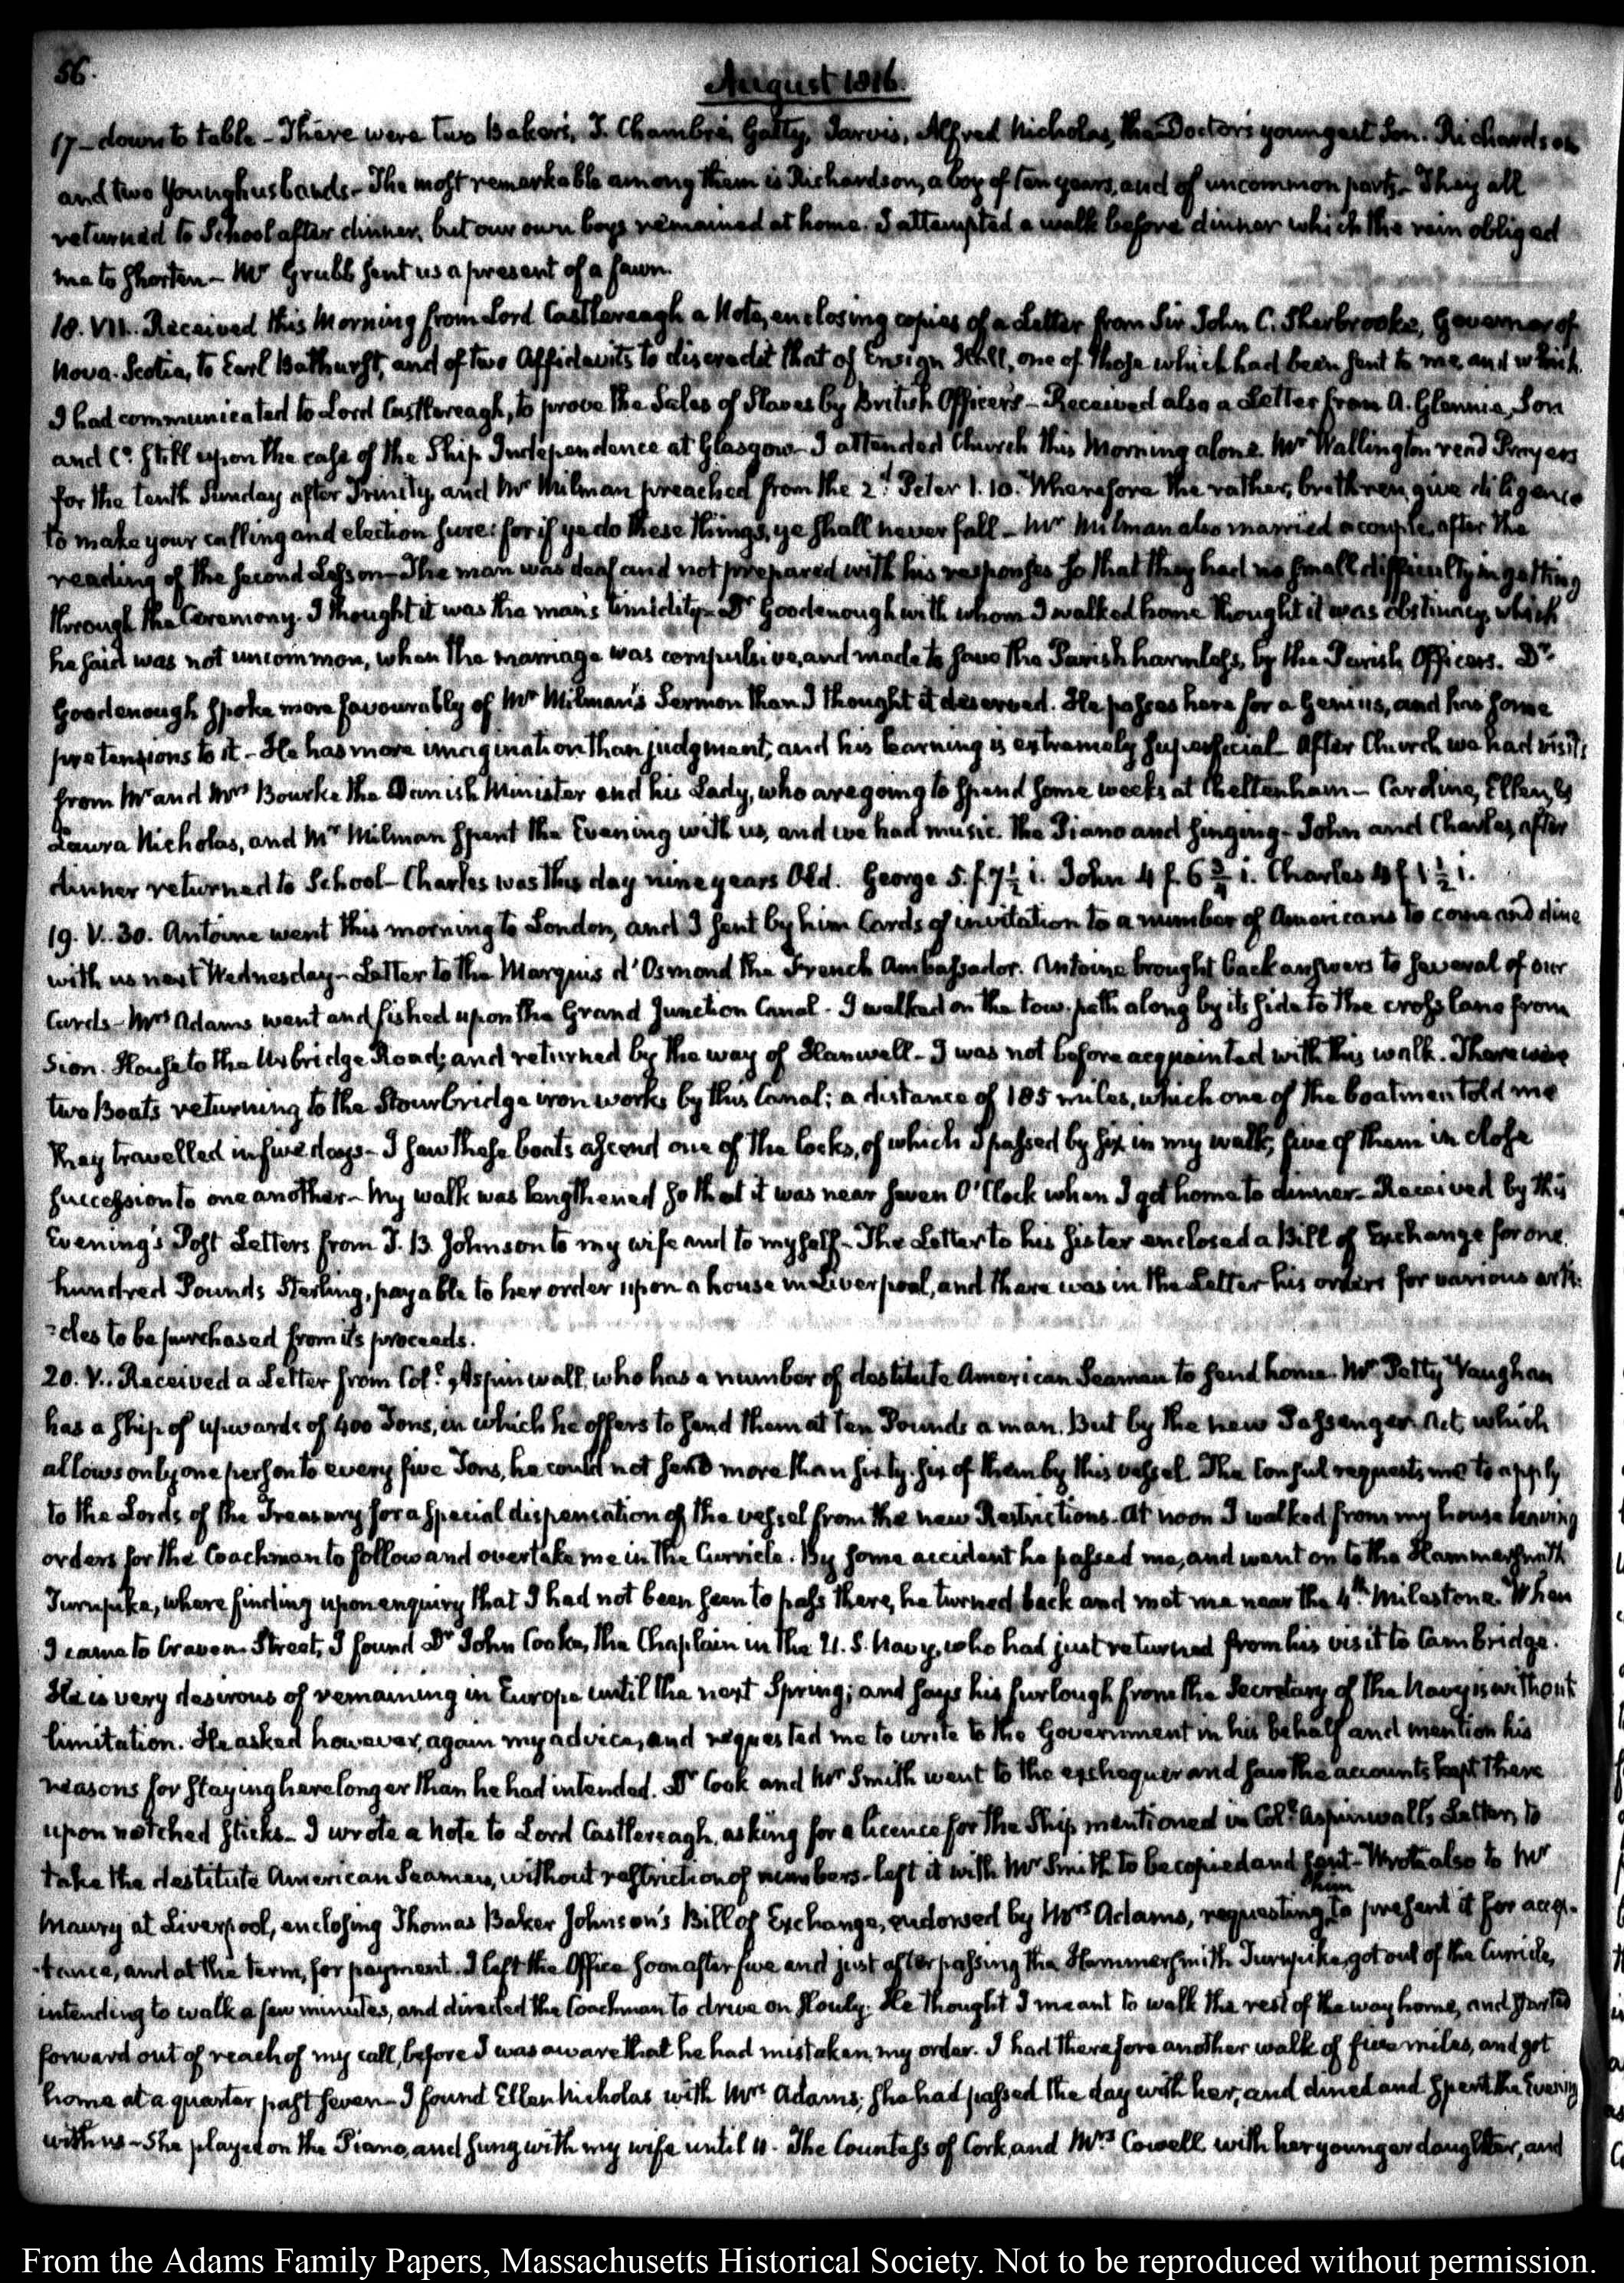 56.
August 1816.
17 - down to table - There were two Bakers, T. Chambré, Gatty, Jarvis, Alfred Nicholas, the Doctor's youngest Son. Richardson
and two Younghusbands - The most remarkable among them is Richardson, a boy of ten years, and of uncommon parts - They all
returned to School after dinner, but our own boys remained at home. I attempted a walk before dinner which the rain obliged
me to shorten - Mr Grubb sent us a present of a fawn.
18. VII. Received this Morning from Lord Castlereagh a Note, enclosing copies of a Letter from Sir John C. Sherbrooke, Governor of
Nova-Scotia, to Earl Bathurst, and of two Affidavits to discredit that of Ensign Hall, one of those which had been sent to me, and which
I had communicated to Lord Castlereagh, to prove the Sales of Slaves by British Officers - Received also a Letter from A. Glennie, Son
and Co. still upon the case of the Ship Independence at Glasgow - I attended Church this Morning alone. Mr Wallington read Prayers
for the tenth Sunday after Trinity, and Mr Milman preached from the 2d. Peter 1. 10. "Wherefore the rather, brethren, give diligence
to make your calling and election sure: for if ye do these things, ye shall never fall - Mr Milman also married a couple, after the
reading of the second Lesson - The man was deaf and not prepared with his responses so that they had no small difficulty in getting
through the Ceremony. I thought it was the man's timidity - Dr Goodenough with whom I walked home thought it was obstinacy, which
he said was not uncommon, when the marriage was compulsive, and made to save the Parish harmless, by the Parish Officers. Dr
Goodenough spoke more favourably of Mr Milman's Sermon than I thought it deserved. He passes here for a Genius, and has some
pretensions to it - He has more imagination than judgment, and his learning is extremely superficial - After Church we had visits
from Mr and Mrs Bourke the Danish Minister and his Lady, who are going to spend some weeks at Cheltenham - Caroline, Ellen, &
Laura Nicholas, and Mr Milman spent the Evening with us, and we had music. The Piano and singing - John and Charles, after
dinner returned to School - Charles was this day nine years Old. George 5. f. 7½ i. John 4 f. 6¾ i. Charles 4 f 1½ i.
19. V. 30. Antoine went this morning to London, and I sent by him Cards of invitation to a number of Americans to come and dine
with us next Wednesday - Letter to the Marquis d'Osmond the French Ambassador. Antoine brought back answers to several of our
Cards - Mrs Adams went and fished upon the Grand Junction Canal - I walked on the tow-path along by its side to the cross lane from
Sion-House to the Uxbridge Road; and returned by the way of Hanwell - I was not before acquainted with this walk. There were
two Boats returning to the Stourbridge iron works by this Canal; a distance of 185 miles, which one of the boatmen told me
they travelled in five days - I saw these boats ascend one of the locks, of which I passed by six in my walk, five of them in close
succession to one another - My walk was lengthened so that it was near seven O'Clock when I got home to dinner - Received by this
Evening's Post Letters from T. B. Johnson to my wife and to myself - The Letter to his sister enclosed a Bill of Exchange for one
hundred Pounds Sterling, payable to her order upon a house in Liverpool, and there was in the Letter his orders for various arti-
-cles to be purchased from its proceeds.
20. V. Received a Letter from Coll. Aspinwall, who has a number of destitute American Seamen to send home. Mr Petty Vaughan
has a ship of upwards of 400 Tons, in which he offers to send them at ten Pounds a man. But by the new Passenger Act, which
allows only one person to every five Tons, he could not send more than sixty-six of them by this vessel. The Consul requests me to apply
to the Lords of the Treasury for a special dispensation of the vessel from the new Restrictions. At noon I walked from my house leaving
orders for the Coachman to follow and overtake me in the Curricle. By some accident he passed me, and went on to the Hammersmith
Turnpike, where finding upon enquiry that I had not been seen to pass there, he turned back and met me near the 4th. Milestone. When
I came to Craven Street, I found Dr John Cooke, the Chaplain in the U. S. Navy, who had just returned from his visit to Cambridge.
He is very desirous of remaining in Europe until the next Spring; and says his furlough from the Secretary of the Navy is without
limitation. He asked however, again my advice, and requested me to write to the Government in his behalf and mention his
reasons for staying here longer than he had intended. Dr Cook and Mr Smith went to the exchequer and saw the accounts kept there
upon notched sticks - I wrote a Note to Lord Castlereagh, asking for a licence for the Ship mentioned in Coll. Aspinwall's Letter, to
take the destitute American Seamen, without restriction of numbers - left it with Mr Smith to be copied and sent - Wrote also to Mr
Maury at Liverpool, enclosing Thomas Baker Johnson's Bill of Exchange, endorsed by Mrs Adams, requesting him to present it for accep-
-tance, and at the term, for payment. I left the Office soon after five and just after passing the Hammersmith Turnpike, got out of the Curricle,
intending to walk a few minutes, and directed the Coachman to drive on slowly. He thought I meant to walk the rest of the way home, and started
forward out of reach of my call, before I was aware that he had mistaken my order. I had therefore another walk of five miles, and got
home at a quarter past seven - I found Ellen Nicholas with Mrs Adams; she had passed the day with her, and dined and spent the Evening
with us - She played on the Piano, and sung with my wife until 11. The Countess of Cork, and Mrs Cowell with her younger daughter, and
From the Adams Family Papers, Massachusetts Historical Society. Not to be reproduced without permission.